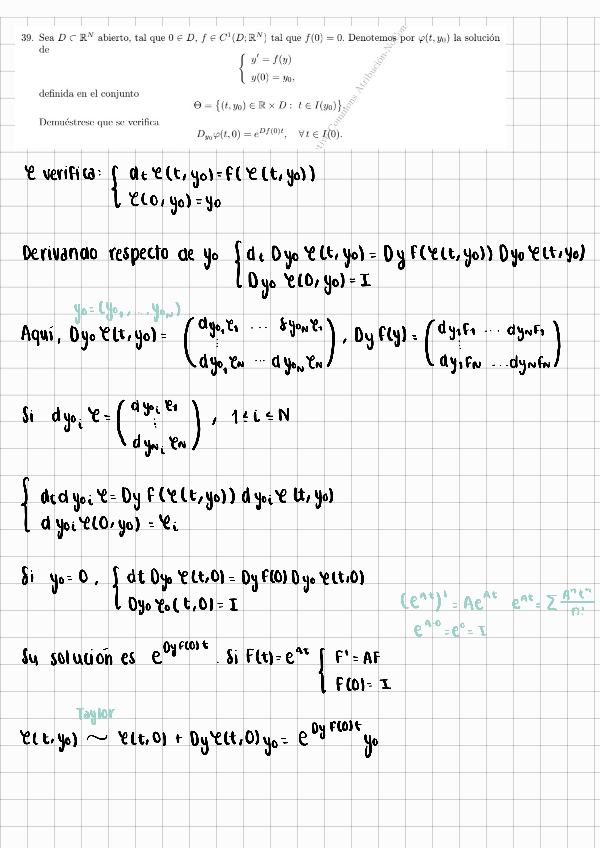 39. Sea D ⊂ ℝ^N abierto, tal que 0 ∈ D, f ∈ C¹(D;ℝ^N) tal que f(0) = 0. Denotemos por φ(t, y₀) la solución
de
{ y' = f(y)
y(0) = y₀,
definida en el conjunto
Θ = {(t, y₀) ∈ ℝ × D : t ∈ I(y₀)}
Demuéstrese que se verifica
D_{y₀}φ(t, 0) = e^{Df(0)t}, ∀t ∈ I(0).
Commons Atribución-No
φ verifica: { d_t φ(t, y₀) = f(φ(t, y₀))
φ(0, y₀) = y₀
Derivando respecto de y₀ { d_t D_{y₀} φ(t, y₀) = D_y f(φ(t, y₀)) D_{y₀} φ(t, y₀)
D_{y₀} φ(0, y₀) = I
y₀ = (y₀₁, ... y₀_N)
Aquí, D_{y₀} φ(t, y₀) = ( d_{y₀₁} φ₁ ... d_{y₀N} φ₁ ⋮ d_{y₀₁} φ_N ... d_{y₀N} φ_N ), D_y f(y) = ( d_{y₁} f₁ ... d_{yN} f₁ ⋮ d_{y₁} f_N ... d_{yN} f_N )
Si d_{y₀i} φ = ( d_{y₀i} φ₁ ⋮ d_{yNi} φ_N ), 1 ≤ i ≤ N
{ d_t d_{y₀i} φ = D_y f(φ(t, y₀)) d_{y₀i} φ(t, y₀)
d_{y₀i} φ(0, y₀) = e_i
Si y₀ = 0, { d_t D_{y₀} φ(t, 0) = D_y f(0) D_{y₀} φ(t, 0)
D_{y₀} φ₀(t, 0) = I
(e^{At})' = Ae^{At} e^{At} = Σ A^n t^n / n!
e^{A·0} = e^0 = I
Su solución es e^{D_y f(0) t}. Si F(t) = e^{At} { F' = AF
F(0) = I
Taylor
φ(t, y₀) ~ φ(t, 0) + D_y φ(t, 0) y₀ = e^{D_y f(0) t} y₀